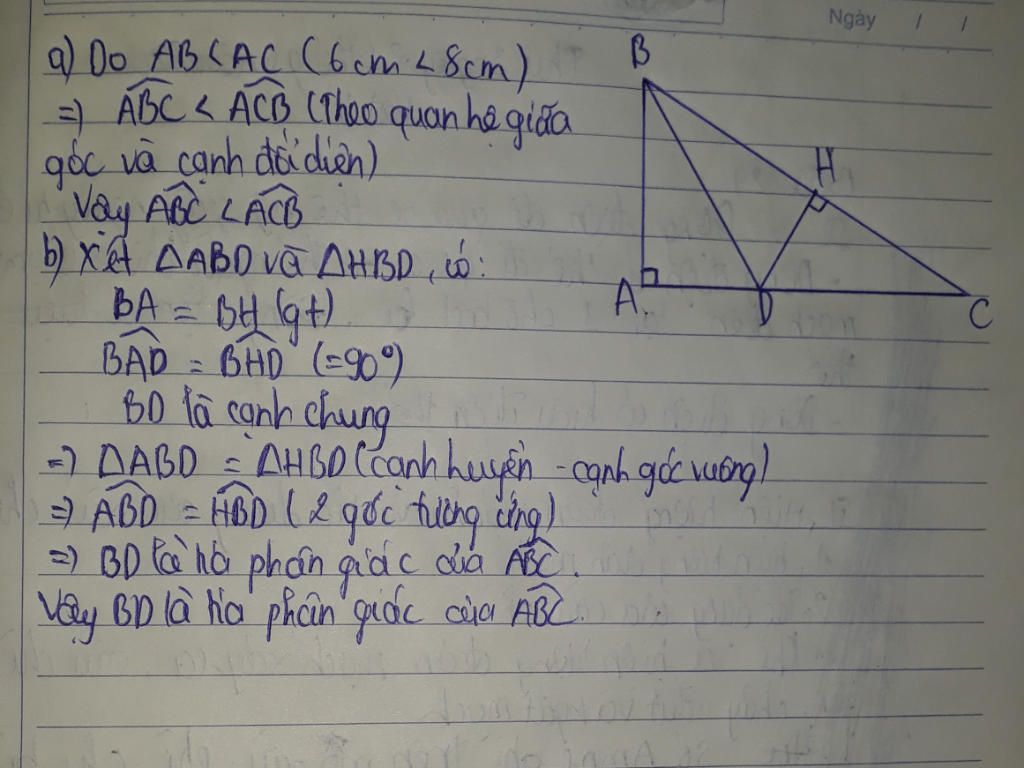 Ngày / /
a) Do AB < AC (6cm < 8cm)
=> \widehat{ABC} < \widehat{ACB} (Theo quan hệ giữa
góc và cạnh đối diện)
Vậy \widehat{ABC} < \widehat{ACB}
b) Xét ΔABD và ΔHBD, có:
BA = BH (gt)
\widehat{BAD} = \widehat{BHD} (=90°)
BD là cạnh chung
=> ΔABD = ΔHBD (cạnh huyền - cạnh góc vuông)
=> \widehat{ABD} = \widehat{HBD} (2 góc tương ứng)
=> BD là phân giác của \widehat{ABC}.
Vậy BD là tia phân giác của \widehat{ABC}.
B
H
A
D
C